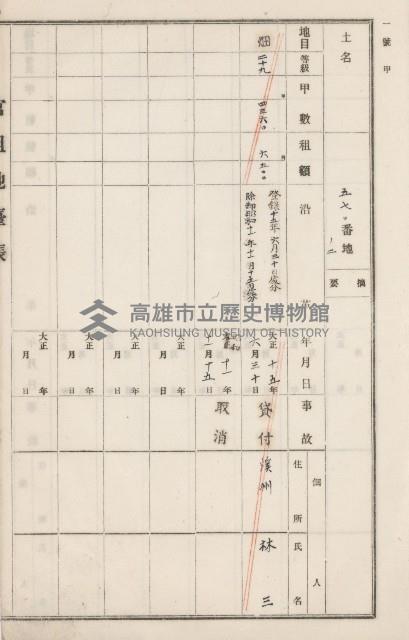 一號甲
土名
五七〇番地ノ二
摘要
地目
等級
甲數
租額
沿革
年月日
事故
個人
住所
氏名
畑
二十九
甲
四三六〇
円
六五〇〇
登錄十五年六月三十日處分
除却昭和十一年十一月十五日處分
大正十五年六月三十日
貸付
溪州
林三
昭和十一年十一月十五日
取消
大正年月日
大正年月日
大正年月日
大正年月日
官租地臺帳
高雄市立歷史博物館
KAOHSIUNG MUSEUM OF HISTORY